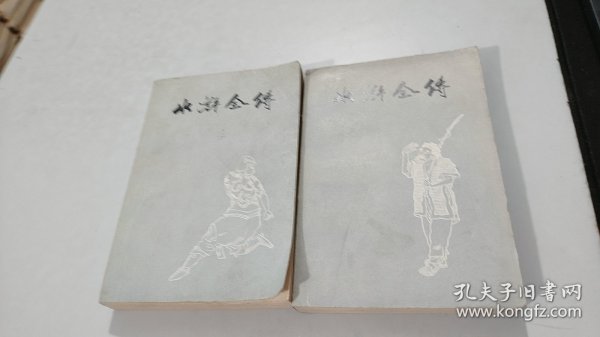 水浒全传
水浒全传
孔夫子旧书网
www.kongfz.com